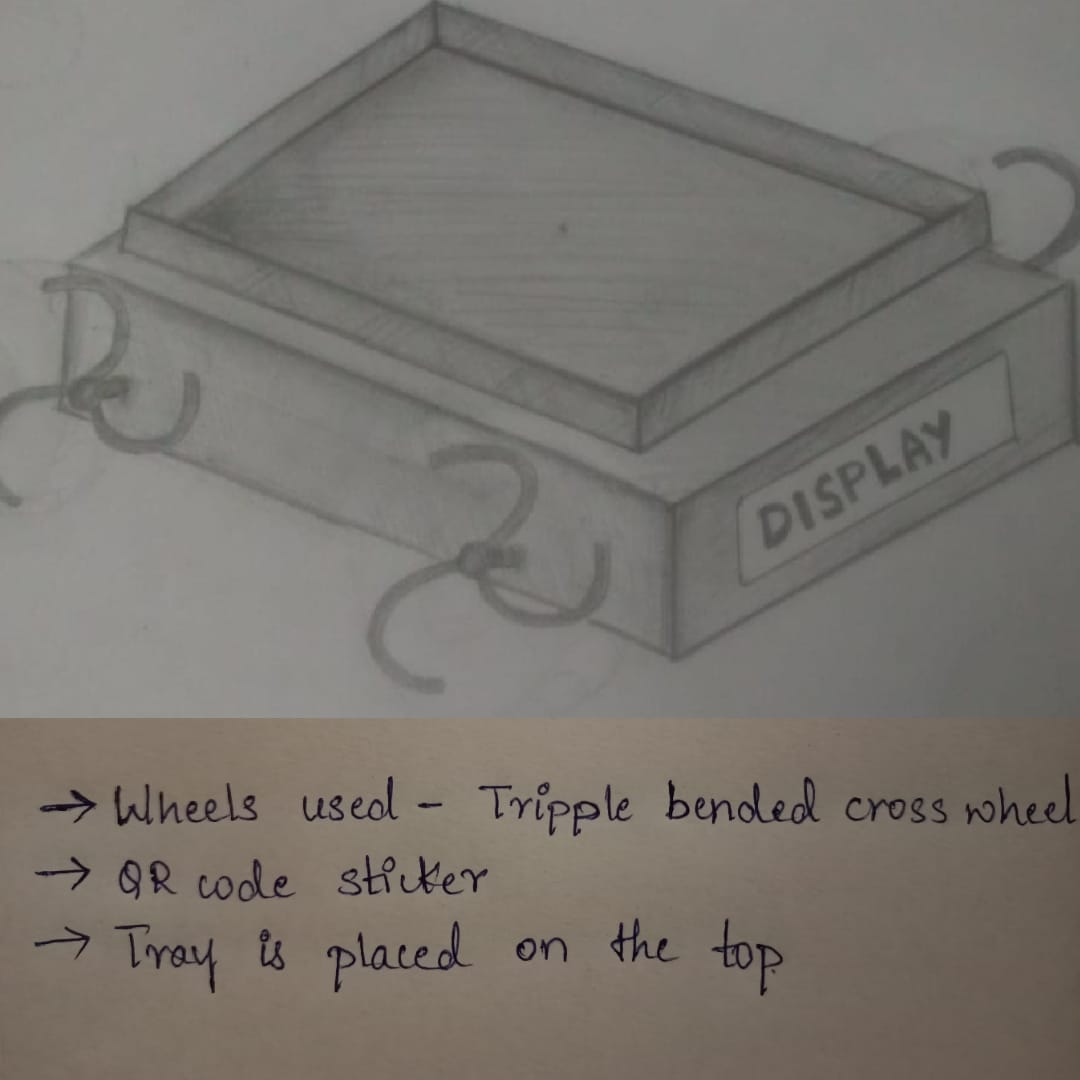 DISPLAY
→ Wheels used - Tripple bended cross wheel
→ QR code sticker
→ Tray is placed on the top.